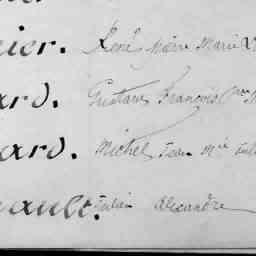 ier. René Pierre Marie
ard. Gustave François
ard. Michel Jean M<sup>ie</sup>
ault. Julien Alexandre